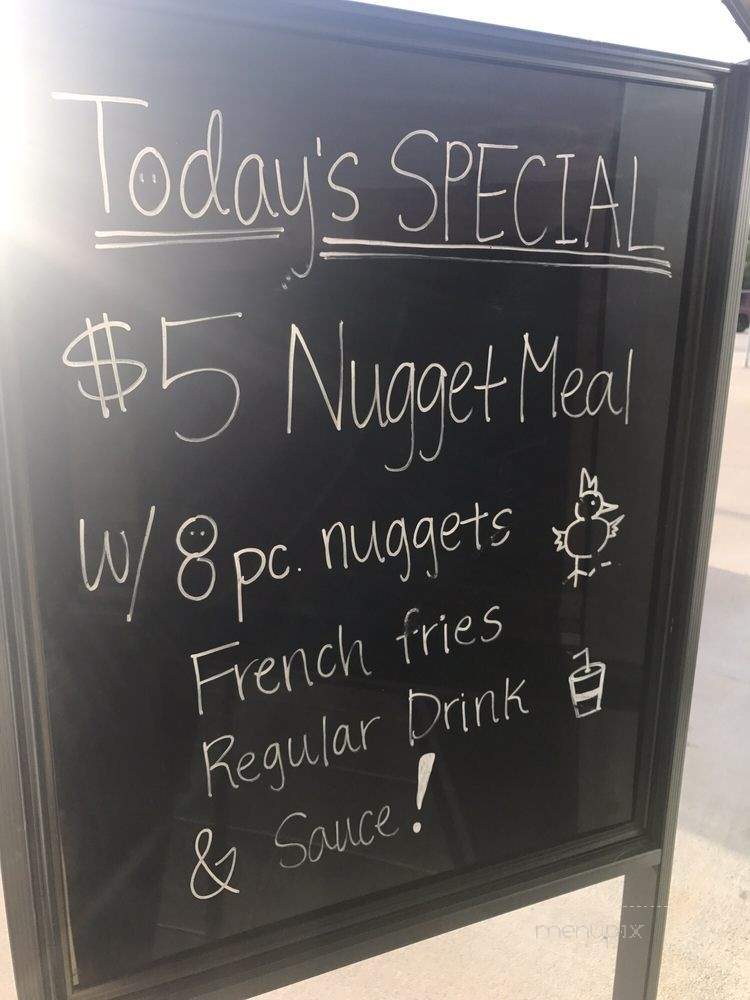 Today's SPECIAL
$5 Nugget Meal
W/ 8 pc. nuggets
French fries
Regular Drink
& Sauce!
menupix